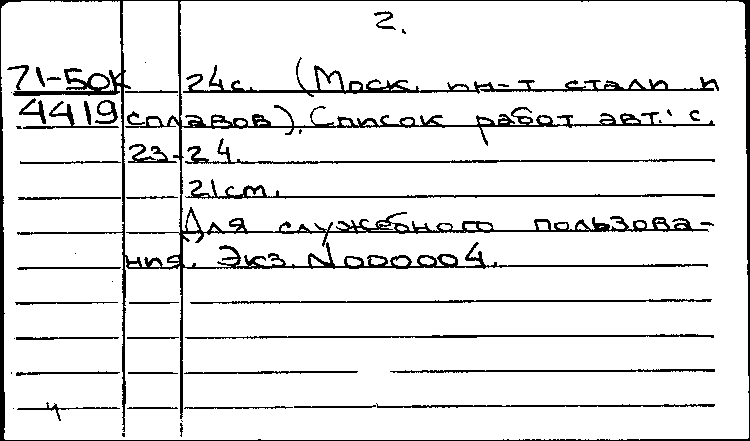 2.
71-50к 24с. (Моск. ин-т стали и
4419 сплавов). Список работ авт.: с.
23-24.
21см.
Для служебного пользова-
ния. Экз. N000004.
ч